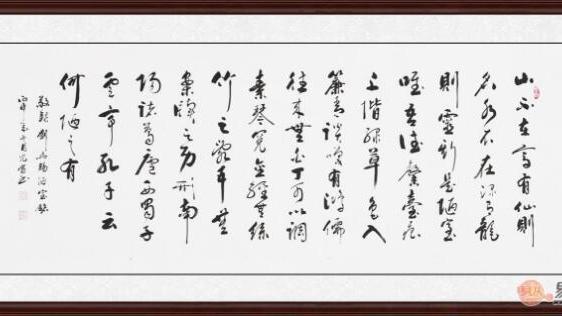 山不在高有仙則
名水不在深有龍
則靈斯是陋室
唯吾德馨苔痕
上階綠草色入
簾青談笑有鴻儒
往来無白丁可以調
素琴閱金經無絲
竹之亂耳無
案牘之勞形南
陽諸葛廬西蜀子
雲亭孔子云
何陋之有
敬錄劉禹錫陋室銘
易